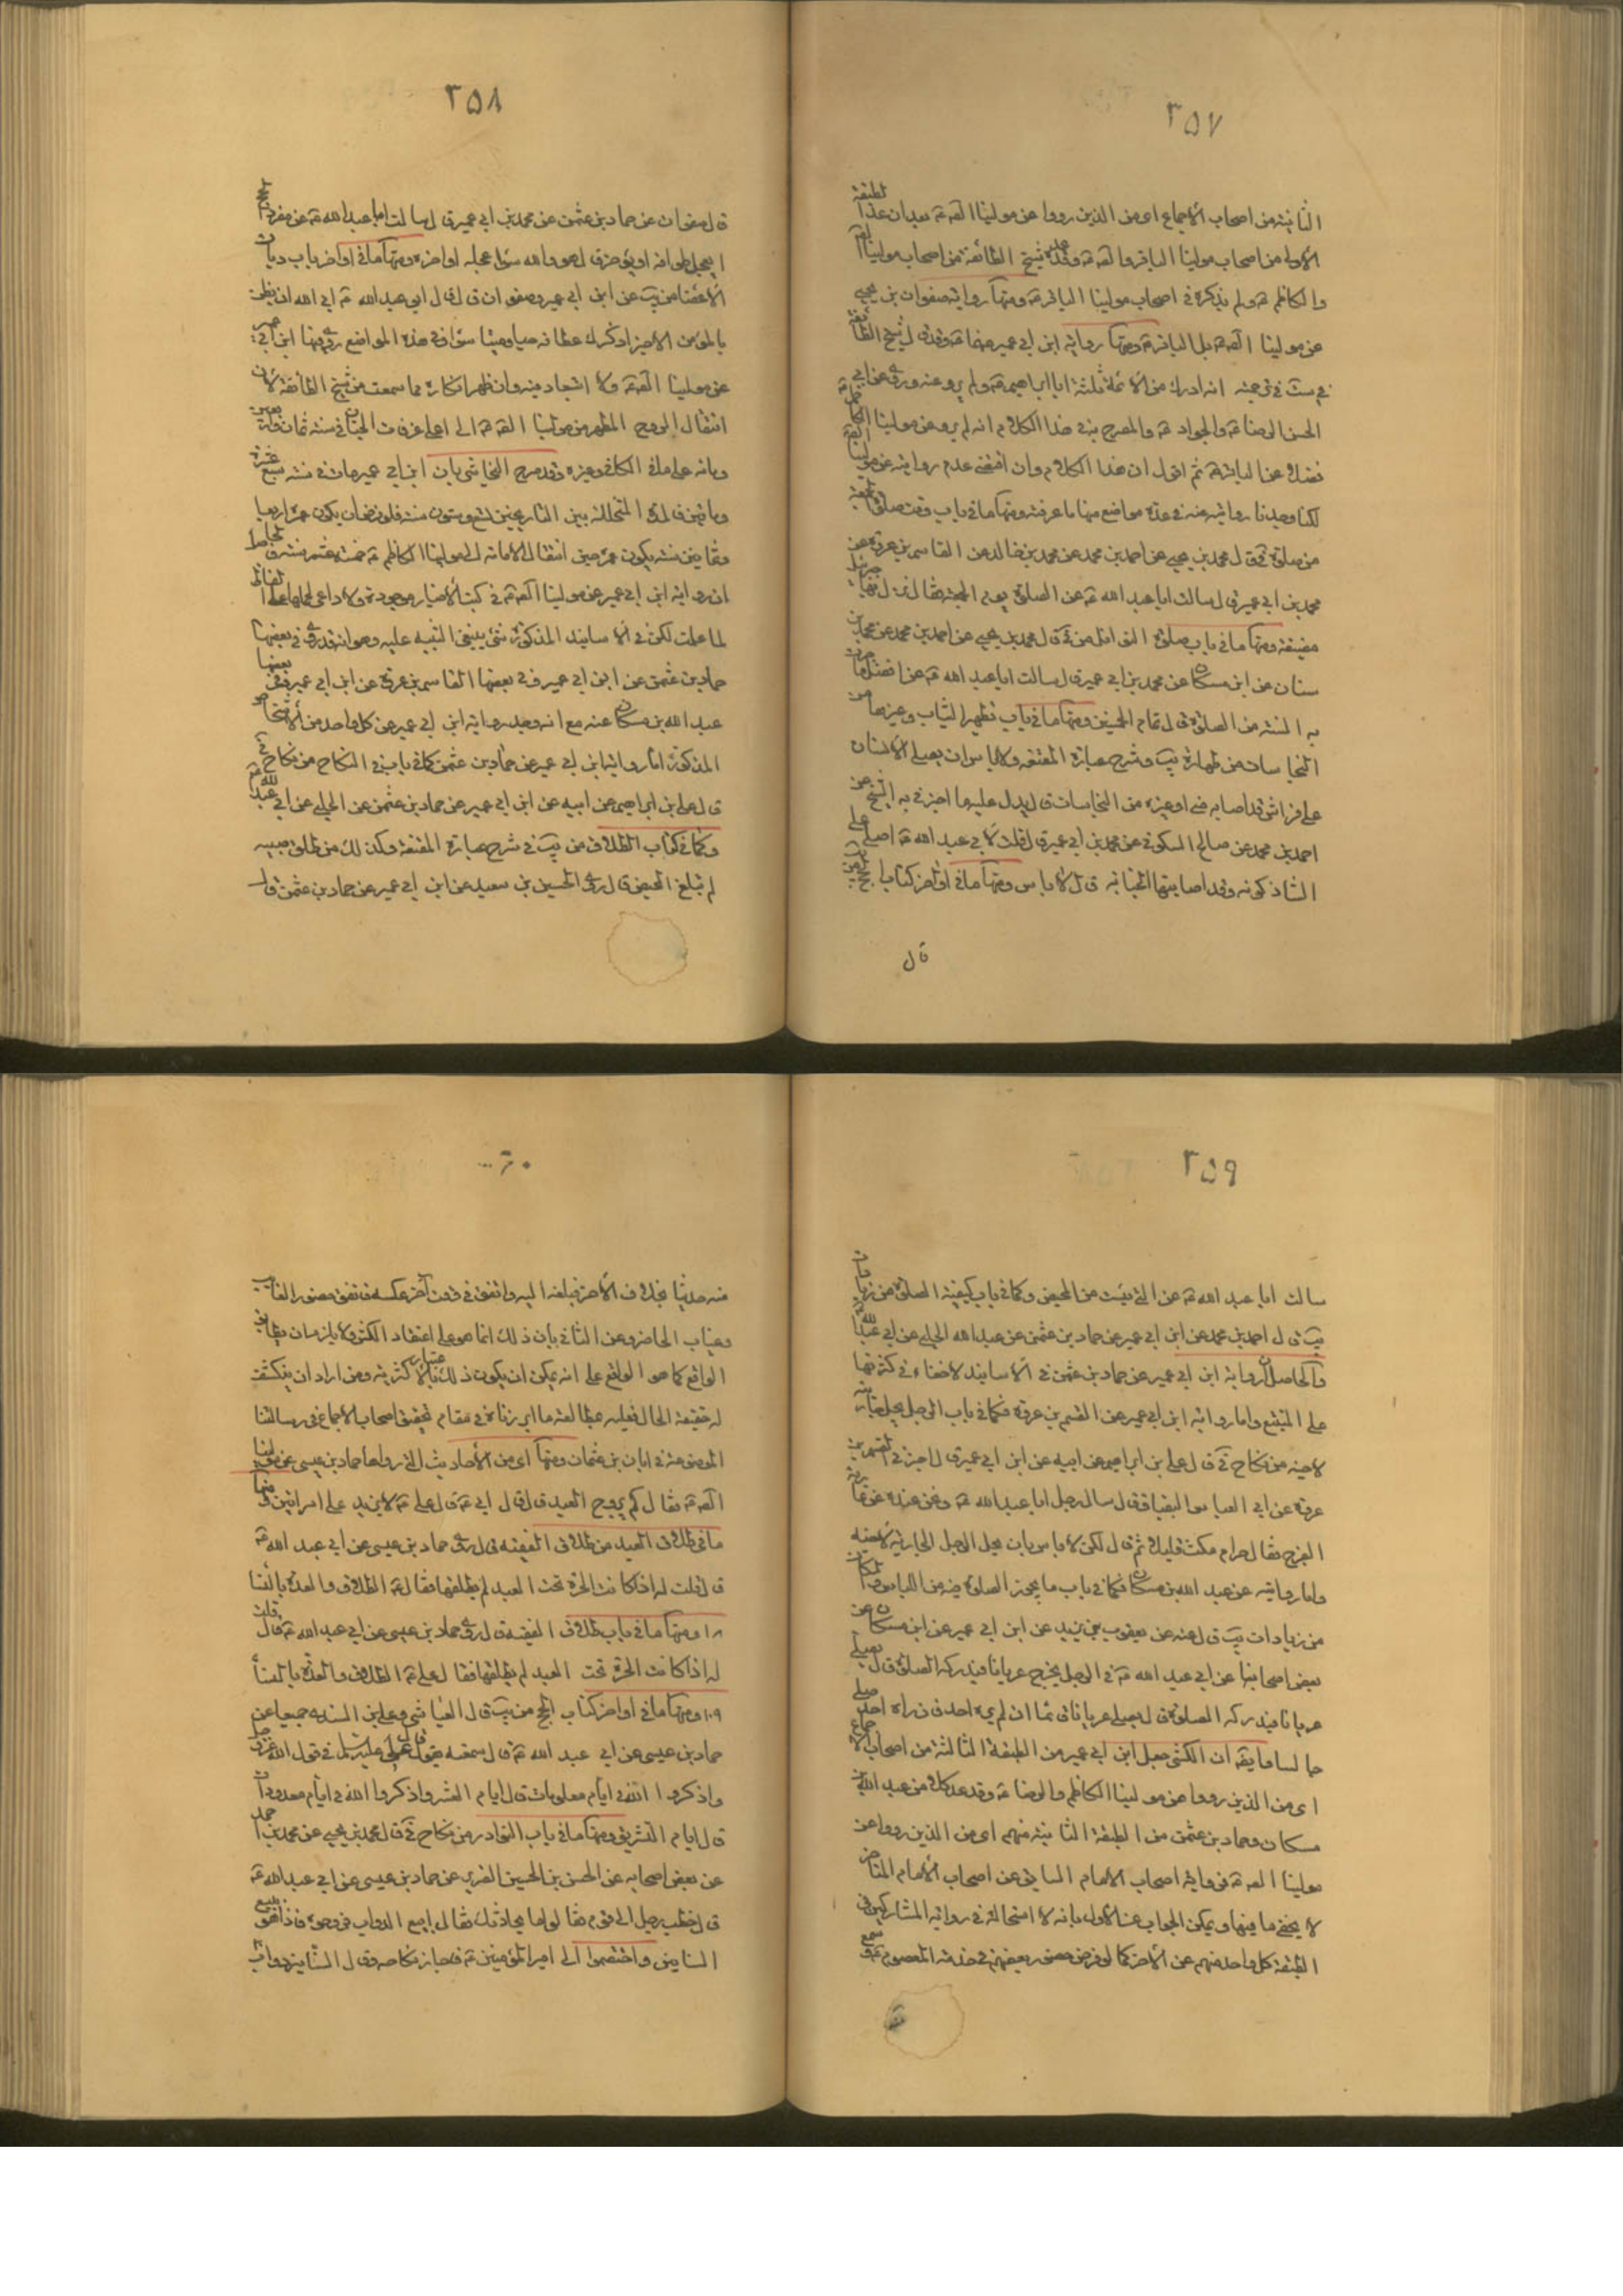 ٢٥٧
الثانية من اصحاب الاجماع اى من الذين رووا عن مولينا الصّ ع بعد ان عدّ الطبقة
الاولى من اصحاب مولينا الباقر والصّ ع وعدّه شيخ الطائفة من اصحاب مولينا
والكاظم ع ولم يذكره فى اصحاب مولينا الباقر ع ومنها رواية صفوان بن يحيى
عن مولينا الصّ ع بل الباقر ع ومنها رواية ابن ابى عمير عنهما ع وقد قال شيخ الطائفة
فى ست فى ترجمته انه ادرك من الائمة ثلثة ابا ابراهيم ع ولم يرو عنه وروى عن ابى
الحسن الرضا ع والجواد ع والمصرح به فى هذا الكلام انه لم يرو عن مولينا الكاظم ع
فضلا عن الباقر ع ثم اقول ان هذا الكلام وان اقتضى عدم روايته عن مولينا الصّ ع
لكنا وجدنا روايته عنه فى عدة مواضع منها ما عرفته ومنها ما فى باب وقت صلوة الجمعة
من صلوة فى قال محمد بن يحيى عن احمد بن محمد عن محمد بن خالد عن القاسم بن عروة عن
محمد بن ابى عمير قال سالت ابا عبد الله ع عن الصلوة يوم الجمعة فقال نزل بها جبرئيل
مضيقة ومنها ما فى باب صلوة النوافل من فى قال محمد بن يحيى عن احمد بن محمد عن محمد بن
سنان عن ابن مسكان عن محمد بن ابى عمير قال سالت ابا عبد الله ع عن افضل ما جرت
به السنة من الصلوة قال تمام الخمسين ومنها ما فى باب تطهير الثياب وغيرها من
النجاسات من طهارة يب وشرح عبارة المقنعة ولا باس ان يصلى الانسان
على فراش قد اصابه منى او غيره من النجاسات قال يدل عليه ما اخبرنى به الشيخ عن
احمد بن محمد عن صالح السكونى عن محمد بن ابى عمير قال قلت لابى عبد الله ع اصلى على
الشاذكونه وقد اصابتها الجنابة قال لا باس ومنها ما فى اواخر كتاب الحج من يب
قال
٢٥٨
قال صفوان عن حماد بن عثمن عن محمد بن ابى عمير قال سالت ابا عبد الله ع عن مفرد الحج
ايعجل طوافه او يؤخره قال هو والله سواء عجله او اخره ومنها ما فى اواخر باب ديات
الاعضا من يب عن ابن ابى عمير وصفوان قال قال ابو عبد الله ع ابى الله ان يظن
بالمؤمن الا خيرا وكسرك عظامه حيا وميتا سواء فى هذه المواضع روى فيها ابن ابى عمير
عن مولينا الصّ ع ولا استبعاد فيه وان ظهر انكاره مما سمعت من شيخ الطائفة لان
انتقال الروح المطهر من مولينا الصّ ع الى اعلى غرفات الجنان فى سنة ثمان واربعين
ومائه على ما فى الكافى وغيره وقد صرح النجاشى بان ابن ابى عمير مات فى سنة سبع عشرة
وماتين فالمدة المتخللة بين التاريخين تسع وستون سنة فلو فرضنا ان يكون عمره اربعا
وثمانين سنة يكون عمره حين انتقال الامامة الى مولينا الكاظم ع خمسة عشر سنة والحاصل
ان رواية ابن ابى عمير عن مولينا الصّ ع فى كتب الاخبار موجودة ولا داعى لحملها على الغلط
لما علمت لكن فى الاسانيد المذكورة شئ ينبغى التنبيه عليه وهو انه قد روى فى بعضها
حماد بن عثمن عن ابن ابى عمير وفى بعضها القاسم بن عروة عن ابن ابى عمير وفى بعضها
عبد الله بن مسكان عنه مع انه وجد رواية ابن ابى عمير عن كل واحد من الاشخاص
المذكورة اما رواية ابن ابى عمير عن حماد بن عثمن كما فى باب فى النكاح من نكاح فى
قال على بن ابراهيم عن ابيه عن ابن ابى عمير عن حماد بن عثمن عن الحلبى عن ابى عبد الله ع
وكما فى كتاب الطلاق من يب فى شرح عبارة المقنعة وكذلك من طلق صبية
لم تبلغ المحيض قال روى الحسين بن سعيد عن ابن ابى عمير عن حماد بن عثمن قال
٢٥٩
سالت ابا عبد الله ع عن التى يئست من المحيض وكما فى باب كيفية الصلوة من زيادات
يب قال احمد بن محمد عن ابن ابى عمير عن حماد بن عثمن عن عبيد الله الحلبى عن ابى عبد الله ع
والحاصل ان رواية ابن ابى عمير عن حماد بن عثمن فى الاسانيد لا خفاء فى كثرتها
على المتتبع واما رواية ابن ابى عمير عن القسم بن عروة فكما فى باب الرجل يحل جاريته
لاخيه من نكاح فى قال على بن ابراهيم عن ابيه عن ابن ابى عمير قال اخبرنى القسم بن
عروة عن ابى العباس البقباق قال سال رجل ابا عبد الله ع ونحن عنده عن عارية
الفرج فقال حرام ثم مكث قليلا ثم قال لكن لا باس بان يحل الرجل الجارية لاخيه
واما روايته عن عبد الله بن مسكان فكما فى باب ما يجوز الصلوة فيه من اللباس والمكان
من زيادات يب قال عنه عن يعقوب بن يزيد عن ابن ابى عمير عن ابن مسكان عن
بعض اصحابنا عن ابى عبد الله ع فى الرجل يخرج عريانا فيدركه الصلوة قال يصلى
عريانا فيدركه الصلوة قال يصلى عريانا قائما ان لم يره احد فان راه احد صلى
جالسا وما يقه ان الكشى جعل ابن ابى عمير من الطبقة الثالثة من اصحاب الاجماع
اى من الذين رووا عن مولينا الكاظم والرضا ع وقد عد كلا من عبد الله بن
مسكان وحماد بن عثمن من الطبقة الثانية منهم اى من الذين رووا عن
مولينا الصّ ع فرواية اصحاب الامام السابق عن اصحاب الامام المتاخر
لا يخفى ما فيها ويمكن الجواب عن الاول بانه لا استحالة فى رواية المشاركين فى
الطبقة كل واحد منهم عن الاخر كما لو فرض حضور بعضهم فى خدمة المعصوم ع وسمع
٦٠
منه حديثا بخلاف الاخر فبلغه اليه واتفق فى وقت آخر عكسه فاتفق حضور الغائب
وغياب الحاضر وعن الثانى بان ذلك انما هو على اعتقاد الكشى ولا يلزم ان يطابق
الواقع كما هو الواقع على انه يمكن ان يكون ذلك باعتبار الاكثرية ومن اراد ان ينكشف
له حقيقة الحال فعليه بمطالعة ما ابرزناه فى مقام تحقيق اصحاب الاجماع فى رسالتنا
الموضوعة فى ابان بن عثمان ومنها اى من الاحاديث التى رواها حماد بن عيسى عن مولينا
الصّ ع فقال كم يزوج العبد قال قال ابى ع قال على ع لا يزيد على امراتين ومنها
ما فى طلاق العبد من طلاق الفقيه قال روى حماد بن عيسى عن ابى عبد الله ع
قال قلت له اذا كانت الحرة تحت العبد لم يطلقها فقال ع الطلاق والعدة بالنسا
١٠٨ ومنها ما فى باب طلاق الفقيه قال روى حماد بن عيسى عن ابى عبد الله ع قال قلت
له اذا كانت الحرة تحت العبد لم يطلقها فقال على ع الطلاق والعدة بالنسا
١٠٩ ومنها ما فى اواخر كتاب الحج من يب قال العباس وعلى بن السندى جميعا عن
حماد بن عيسى عن ابى عبد الله ع قال سمعته يقول قال على عليه السلام فى قول الله عز وجل
واذكروا الله فى ايام معلومات قال ايام العشر واذكروا الله فى ايام معدودات
قال ايام التشريق ومنها ما فى باب النوادر من نكاح فى قال محمد بن يحيى عن محمد بن احمد
عن بعض اصحابه عن الحسن بن الحسين الضرير عن حماد بن عيسى عن ابى عبد الله ع
قال خطب رجل الى قوم فقالوا ما تجارتك فقال ابيع الدواب فزوجوه فاذا هو يبيع
السنانير واختصموا الى امير المؤمنين ع فاجاز نكاحه وقال السنانير دواب